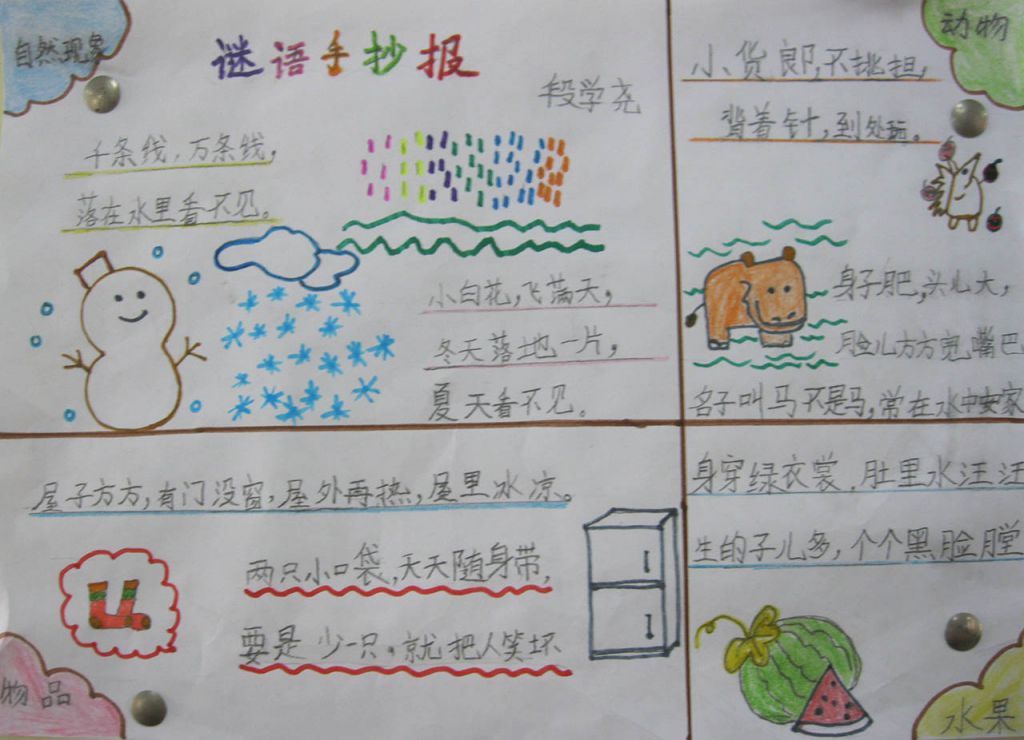 自然现象
谜语手抄报
段学尧
千条线，万条线，
落在水里看不见。
小白花，飞满天，
冬天落地一片，
夏天看不见。
动物
小货郎，不挑担，
背着针，到处玩。
身子肥，头儿大，
脸儿方方宽嘴巴
名子叫马不是马，常在水中安家
屋子方方，有门没窗，屋外再热，屋里冰凉。
两只小口袋，天天随身带，
要是少一只，就把人笑坏
物品
身穿绿衣裳，肚里水汪汪
生的子儿多，个个黑脸膛
水果